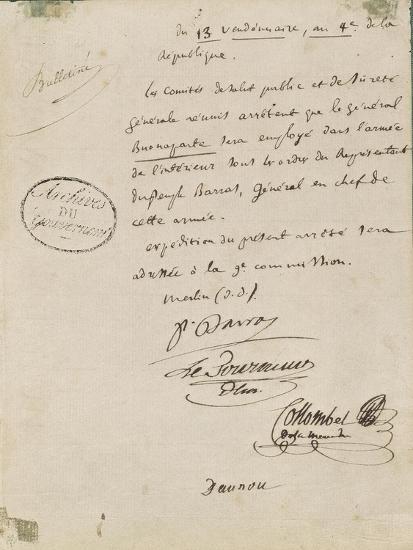 du 13 vendémiaire, an 4e. de la
République.
Bulletiné
les Comités de salut public et de sûreté
générale réunis arrêtent que le général
Buonaparte sera employé dans l'armée
de l'intérieur sous les ordres du Représentant
du peuple Barras, Général en chef de
cette armée.
expédition du présent arrêté sera
adressée à la 9e commission.
Archives
DU
Gouvernement
merlin (d. d.)
P. Barras
Le Tourneur
Collombel
de la meurthe
Daunou